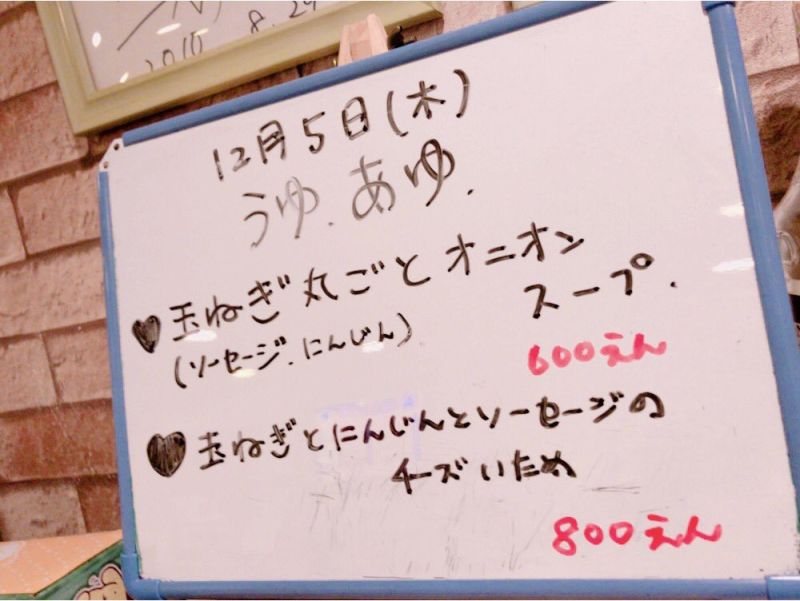 2010 8.29
12月5日(木)
うゆ.あゆ.
♥玉ねぎ丸ごとオニオン
スープ.
(ソーセージ.にんじん)
600えん
♥玉ねぎとにんじんとソーセージの
チーズいため
800えん